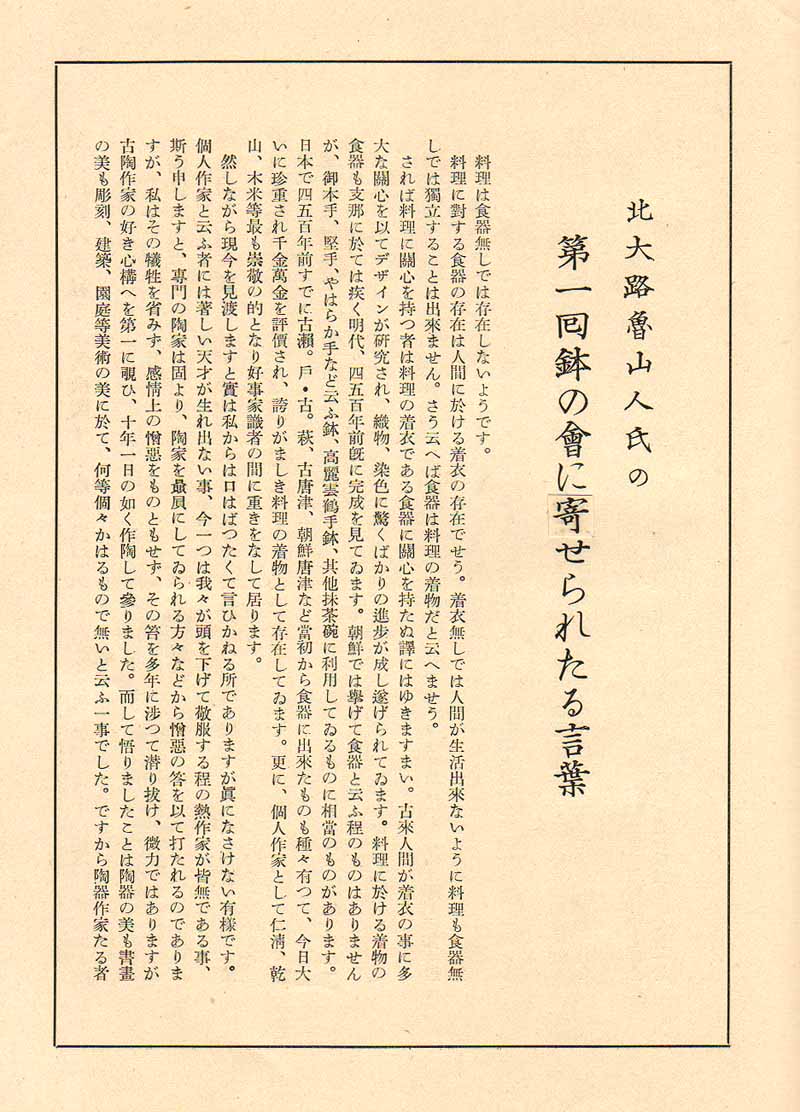 北大路魯山人氏の
第一回鉢の會に寄せられたる言葉
料理は食器無しでは存在しないようです。
料理に對する食器の存在は人間に於ける着衣の存在でせう。着衣無しでは人間が生活出來ないように料理も食器無
しでは獨立することは出來ません。さう云へば食器は料理の着物だと云へませう。
されば料理に關心を持つ者は料理の着衣である食器に關心を持たぬ譯にはゆきますまい。古來人間が着衣の事に多
大な關心を以てデザインが硏究され、織物、染色に驚くばかりの進步が成し遂げられてゐます。料理に於ける着物の
食器も支那に於ては疾く明代、四五百年前旣に完成を見てゐます。朝鮮では擧げて食器と云ふ程のものはありません
が、御本手、堅手、やはらか手など云ふ鉢、高麗雲鶴手鉢、其他抹茶碗に利用してゐるものに相當のものがあります。
日本で四五百年前すでに古瀨。戶・古。萩、古唐津、朝鮮唐津など當初から食器に出來たものも種々有つて、今日大
いに珍重され千金萬金を評價され、誇りがましき料理の着物として存在してゐます。更に、個人作家として仁淸、乾
山、木米等最も崇敬の的となり好事家識者の間に重きをなして居ります。
然しながら現今を見渡しますと實は私からは口はばつたくて言ひかねる所でありますが眞になさけない有樣です。
個人作家と云ふ者には著しい天才が生れ出ない事、今一つは我々が頭を下げて敬服する程の熱作家が皆無である事、
斯う申しますと、專門の陶家は固より、陶家を贔屓にしてゐられる方々などから憎惡の答を以て打たれるのでありま
すが、私はその犠牲を省みず、感情上の憎惡をものともせず、その答を多年に涉つて潜り抜け、微力ではありますが
古陶作家の好き心構へを第一に覗ひ、十年一日の如く作陶して參りました。而して悟りましたことは陶器の美も書畫
の美も彫刻、建築、園庭等美術の美に於て、何等個々かはるもので無いと云ふ一事でした。ですから陶器作家たる者